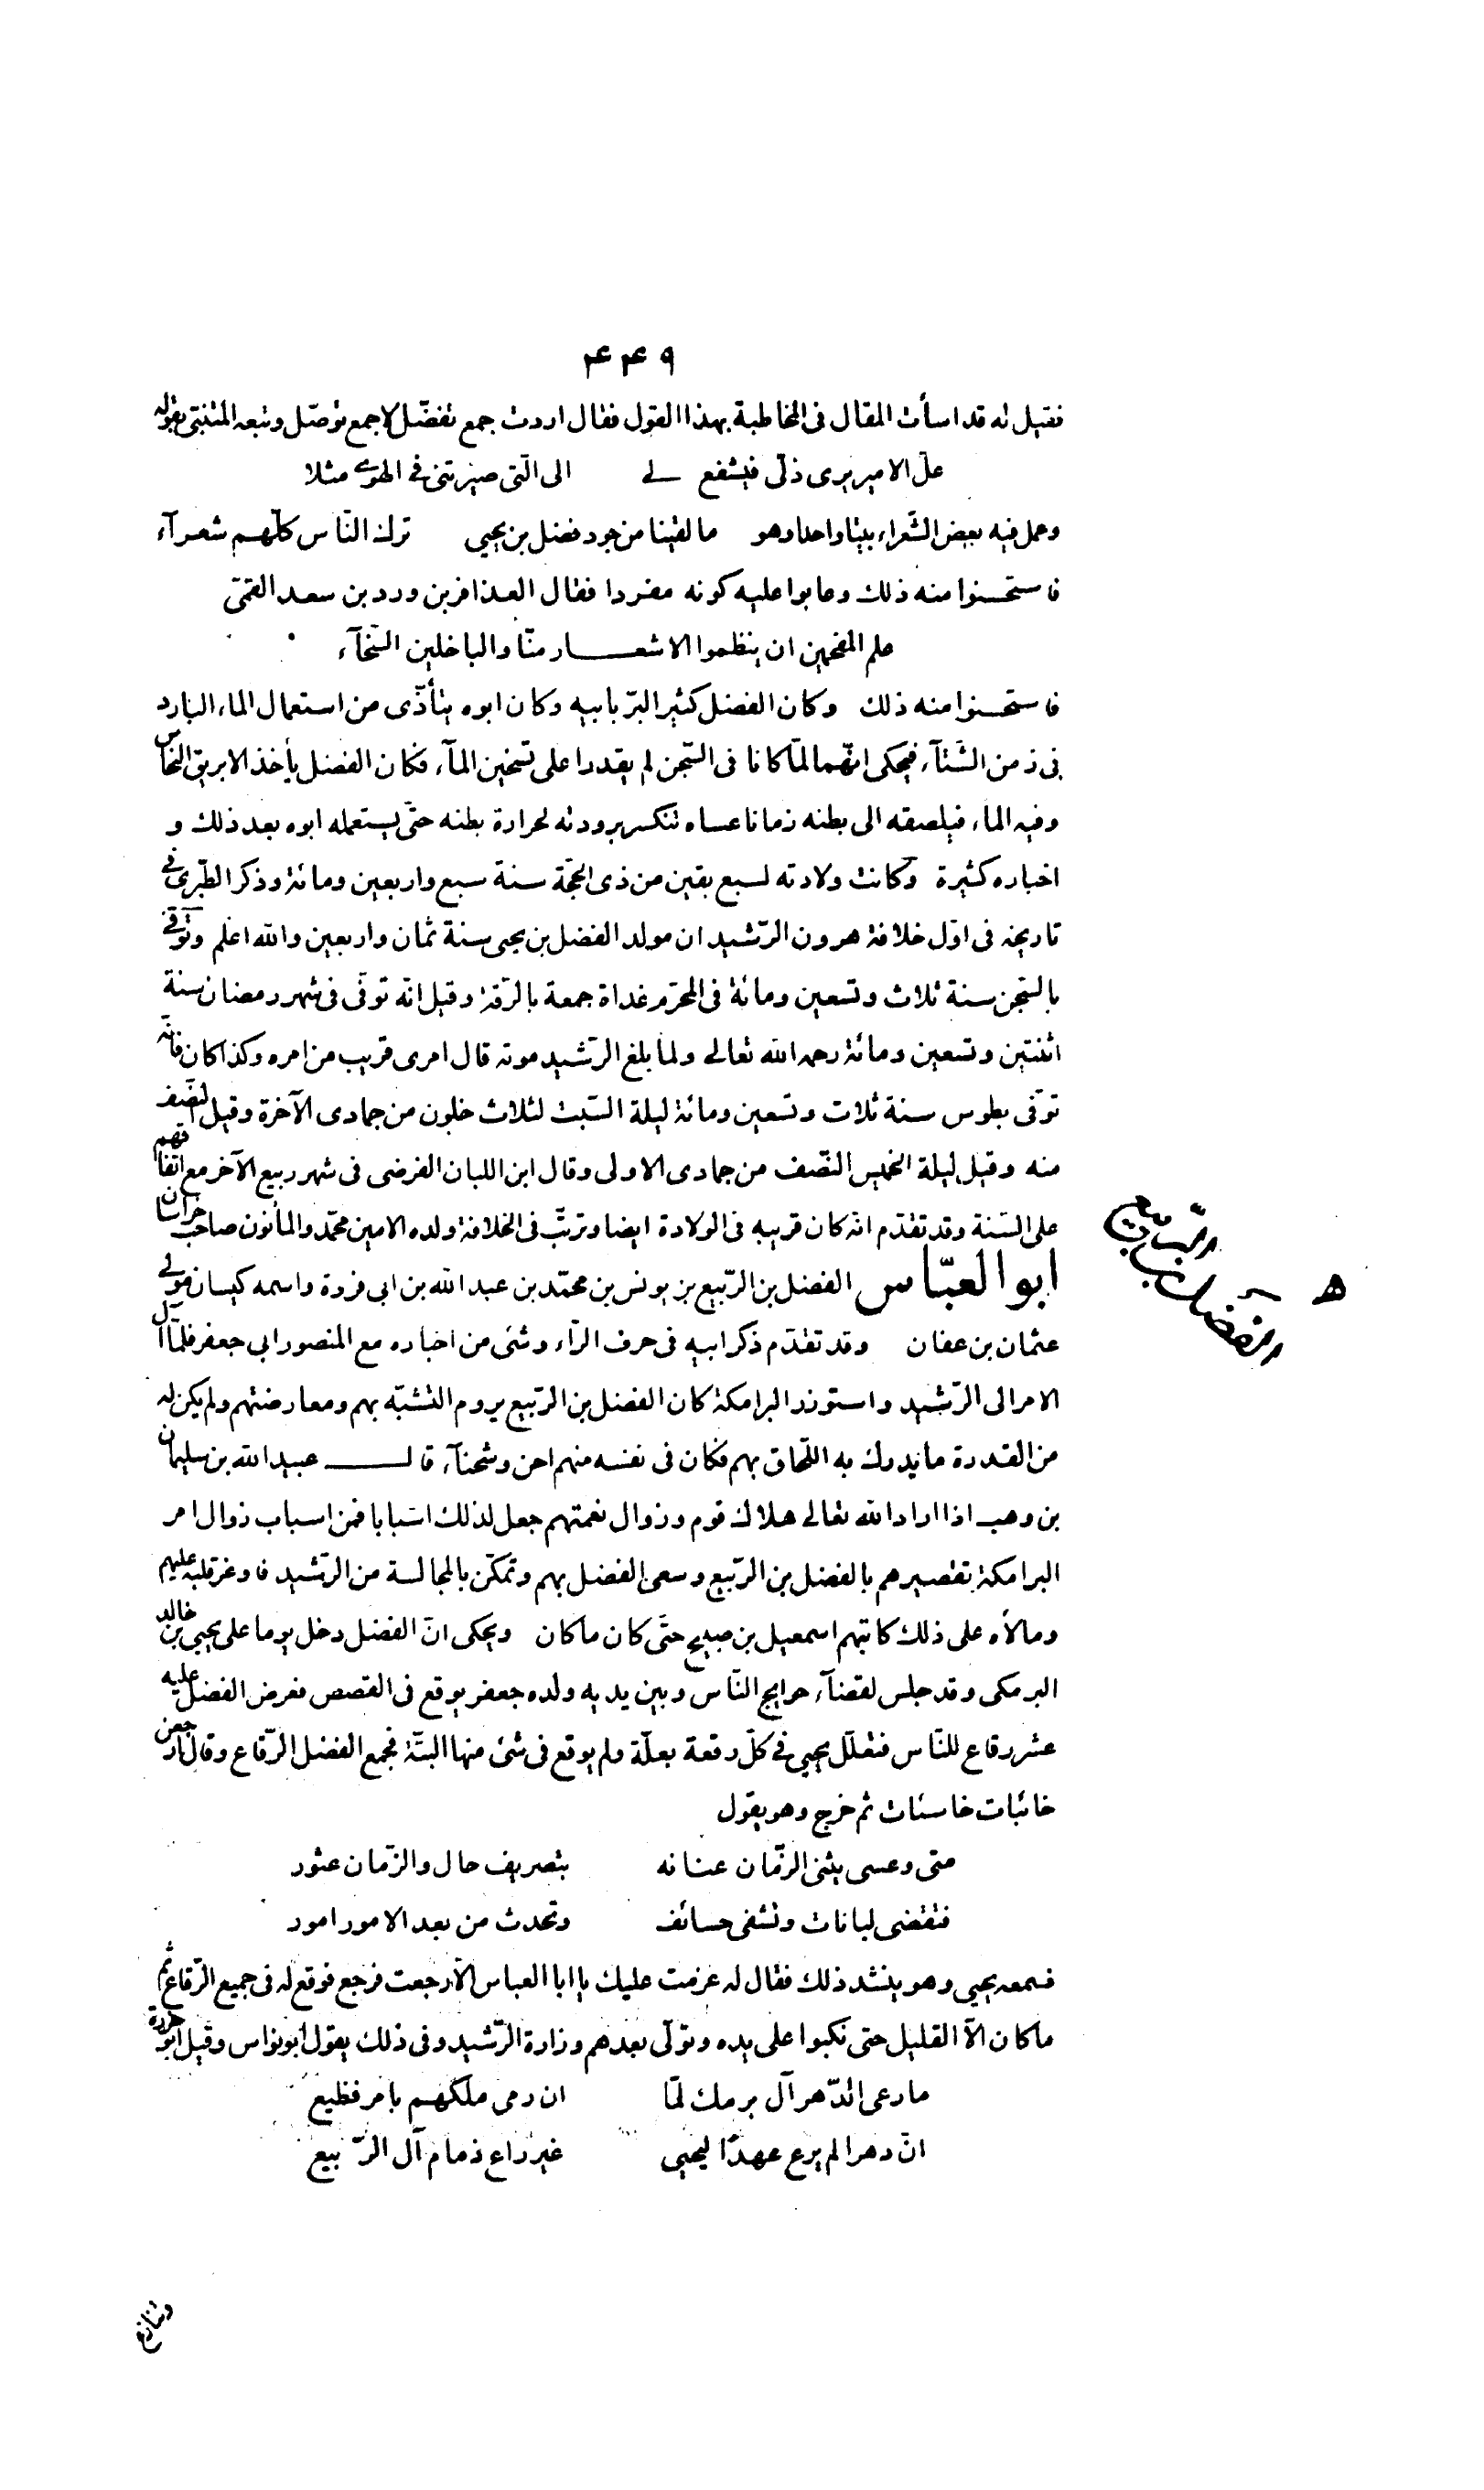 ۴۴۹
فقيل له قد اسأت المقال فى المخاطبة بهذا القول فقال اردت جمع تفضّل لا جمع توصّل وتبعه المتنبّى بقوله
علّ الامير يرى ذلّى فيشفع لے الى الّتى صيرتنى فے الهوى مثلا
وعمل فيه بعض الشّعراء بيتا واحدا وهو ما لقينا من جود فضل بن يحيى ترك النّاس كلّهم شعرآء
فاستحسنوا منه ذلك وعابوا عليه كونه مفردا فقال العذافر بن ورد بن سعد القمّى
علم المفحمين ان ينظموا الاشعار منّا والباخلين السّخآء
فاستحسنوا منه ذلك وكان الفضل كثير البرّ بابيه وكان ابوه يتأذّى من استعمال الماء البارد
فى زمن الشّتآء فيحكى انّهما لمّا كانا فى السّجن لم يقدرا على تسخين المآء فكان الفضل يأخذ الابريق النّحاس
وفيه الماء فيلصقه الى بطنه زمانا عساه تنكسر برودته لحرارة بطنه حتّى يستعمله ابوه بعد ذلك و
اخباره كثيرة وكانت ولادته لسبع بقين من ذى الحجّة سنة سبع واربعين ومائة وذكر الطّبرى فے
تاريخه فى اوّل خلافة هرون الرّشيد ان مولد الفضل بن يحيى سنة ثمان واربعين والله اعلم وتوفّى
بالسّجن سنة ثلاث وتسعين ومائة فى المحرّم غداة جمعة بالرّقة وقيل انّه توفّى فى شهر رمضان سنة
اثنتين وتسعين ومائة رحمه الله تعالے ولما بلغ الرّشيد موته قال امرى قريب من امره وكذا كان فانّه
توفّى بطوس سنة ثلاث وتسعين ومائة ليلة السّبت لثلاث خلون من جمادى الآخرة وقيل النّصف
منه وقيل ليلة الخميس النّصف من جمادى الاولى وقال ابن اللبان الفرضى فى شهر ربيع الآخر مع اتفاقهم
على السّنة وقد تقدّم انّه كان قريبه فى الولادة ايضا وترتّب فى الخلافة ولده الامين محمّد والمأنون صاحب خراسان
ابو العبّاس الفضل بن الرّبيع بن يونس بن محمّد بن عبد الله بن ابى فروة واسمه كيسان مولے
الفضل بن الرّبيع
ه
عثمان بن عفان وقد تقدّم ذكر ابيه فى حرف الرّاء وشئ من اخباره مع المنصور ابى جعفر فلمّا آل
الامر الى الرّشيد واستوزر البرامكة كان الفضل بن الرّبيع يروم التّشبّه بهم ومعارضتهم ولم يكن له
من القدرة ما يدرك به اللّحاق بهم فكان فى نفسه منهم احن وشحنآء قال عبيد الله بن سليمان
بن وهب اذا اراد الله تعالے هلاك قوم وزوال نعمتهم جعل لذلك اسبابا فمن اسباب زوال امر
البرامكة تقصيرهم بالفضل بن الرّبيع وسعى الفضل بهم وتمكّن بالمجالسة من الرّشيد فاوغر قلبه عليهم
ومالأه على ذلك كاتبهم اسمعيل بن صبيح حتّى كان ما كان ويحكى انّ الفضل دخل يوما على يحيى بن خالد
البرمكى وقد جلس لقضآء حوايج النّاس وبين يديه ولده جعفر يوقع فى القصص فعرض الفضل عليه
عشر رقاع للنّاس فتعلّل يحيى فے كلّ رقعة بعلّة ولم يوقع فى شئ منها البتّة فجمع الفضل الرّقاع وقال ارجعن
خائبات خاسئات ثم خرج وهو يقول
متى وعسى يثنى الزّمان عنانه بتصريف حال والزّمان عثور
فتقضى لبانات وتشفى حسائف وتحدث من بعد الامور امور
فسمعه يحيى وهو ينشد ذلك فقال له عزمت عليك يا ابا العباس الّا رجعت فرجع فوقع له فى جميع الرّقاع ثمّ
ما كان الّا القليل حتى نكبوا على يده وتولّى بعدهم وزارة الرّشيد وفى ذلك يقول ابو نواس وقيل ابو حزرة
ما رعى الدّهر آل برمك لمّا ان رمى ملكهم بامر فظيع
انّ دهرا لم يرع عهدًا ليحيى غير راع ذمام آل الرّبيع
وتنازع